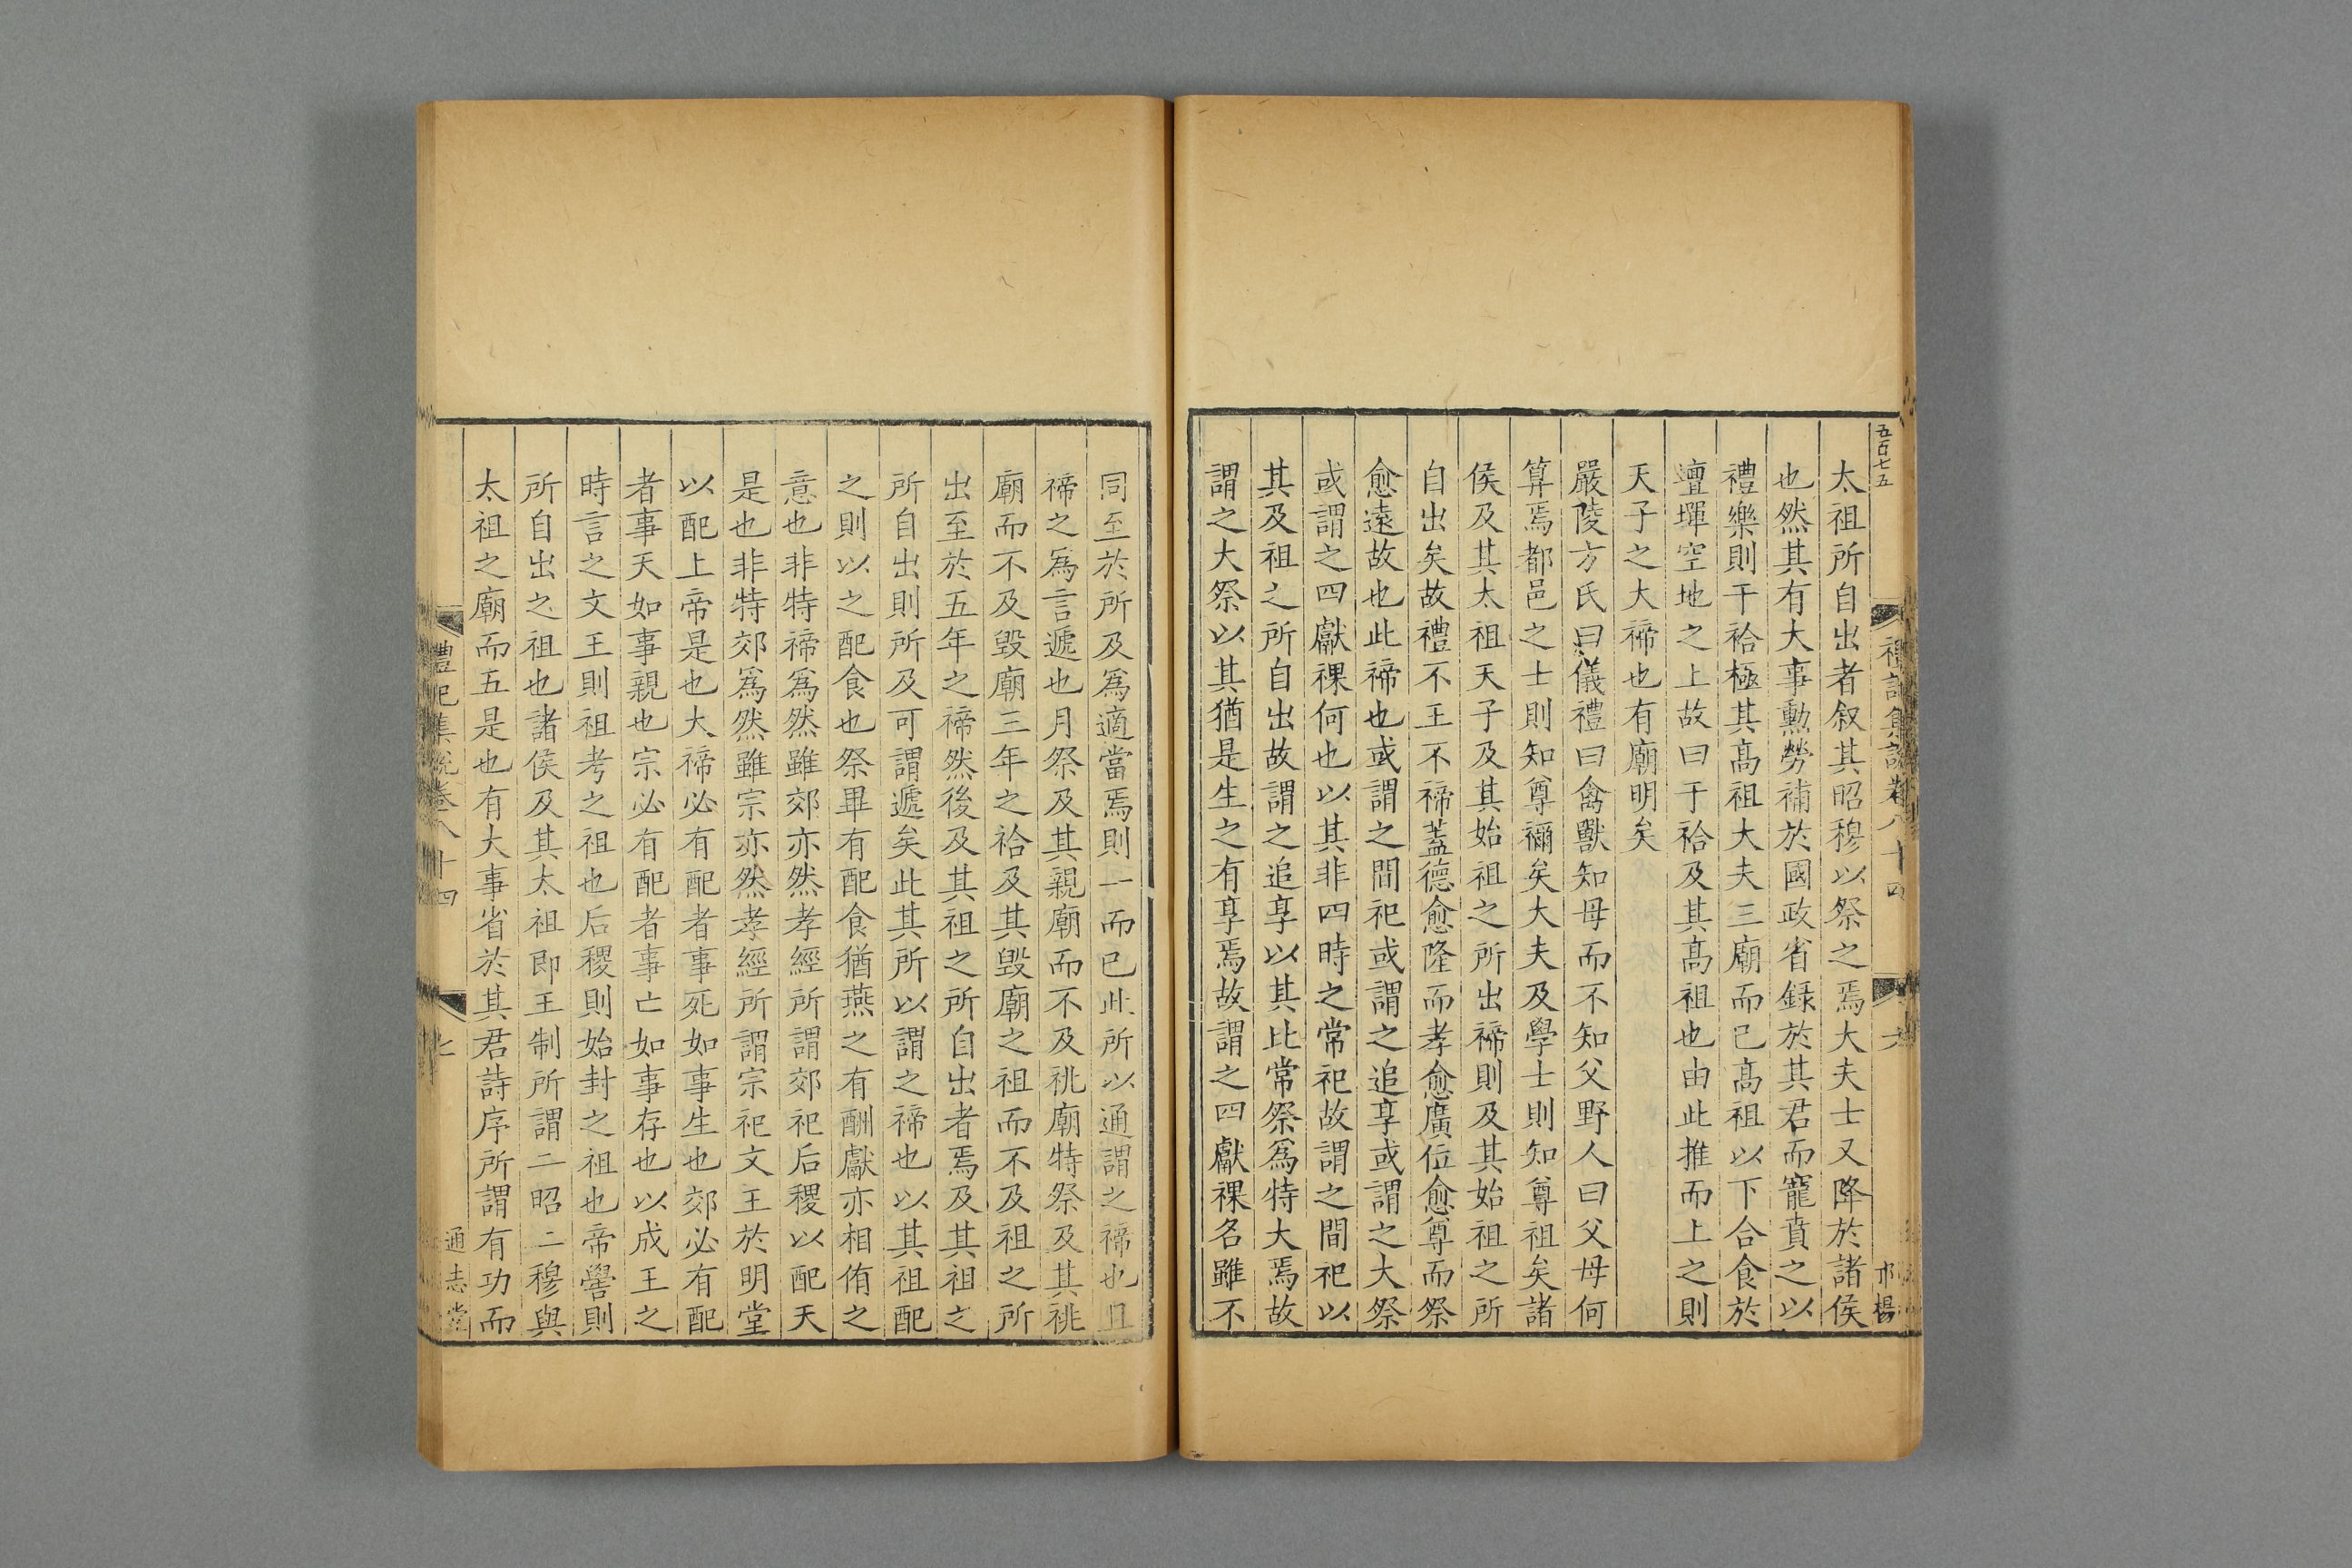 五百七五
禮記集說卷八十四
六
太祖所自出者叙其昭穆以祭之焉大夫士又降於諸侯
也然其有大事勳勞補於國政省録於其君而寵賁之以
禮樂則干祫極其髙祖大夫三廟而已髙祖以下合食於
壇墠空地之上故曰于祫及其髙祖也由此推而上之則
天子之大禘也有廟明矣
嚴陵方氏曰儀禮曰禽獸知母而不知父野人曰父母何
算焉都邑之士則知尊禰矣大夫及學士則知尊祖矣諸
侯及其太祖天子及其始祖之所出禘則及其始祖之所
自出矣故禮不王不禘蓋德愈隆而孝愈廣位愈尊而祭
愈遠故也此禘也或謂之間祀或謂之追享或謂之大祭
或謂之四獻祼何也以其非四時之常祀故謂之間祀以
其及祖之所自出故謂之追享以其比常祭爲特大焉故
謂之大祭以其猶是生之有享焉故謂之四獻祼名雖不
同至於所及爲適當焉則一而已此所以通謂之禘也且
禘之爲言遞也月祭及其親廟而不及祧廟特祭及其祧
廟而不及毀廟三年之祫及其毀廟之祖而不及祖之所
出至於五年之禘然後及其祖之所自出者焉及其祖之
所自出則所及可謂遞矣此其所以謂之禘也以其祖配
之則以之配食也祭畢有配食猶燕之有酬獻亦相侑之
意也非特禘爲然雖郊亦然孝經所謂郊祀后稷以配天
是也非特郊爲然雖宗亦然孝經所謂宗祀文王於明堂
以配上帝是也大禘必有配者事死如事生也郊必有配
者事天如事親也宗必有配者事亡如事存也以成王之
時言之文王則祖考之祖也后稷則始封之祖也帝嚳則
所自出之祖也諸侯及其太祖即王制所謂二昭二穆與
太祖之廟而五是也有大事省於其君詩序所謂有功而
禮記集說卷八十四
七
通志堂